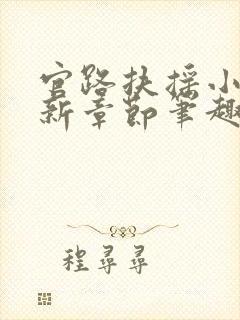 官路扶摇小
新章节笔趣
程寻寻